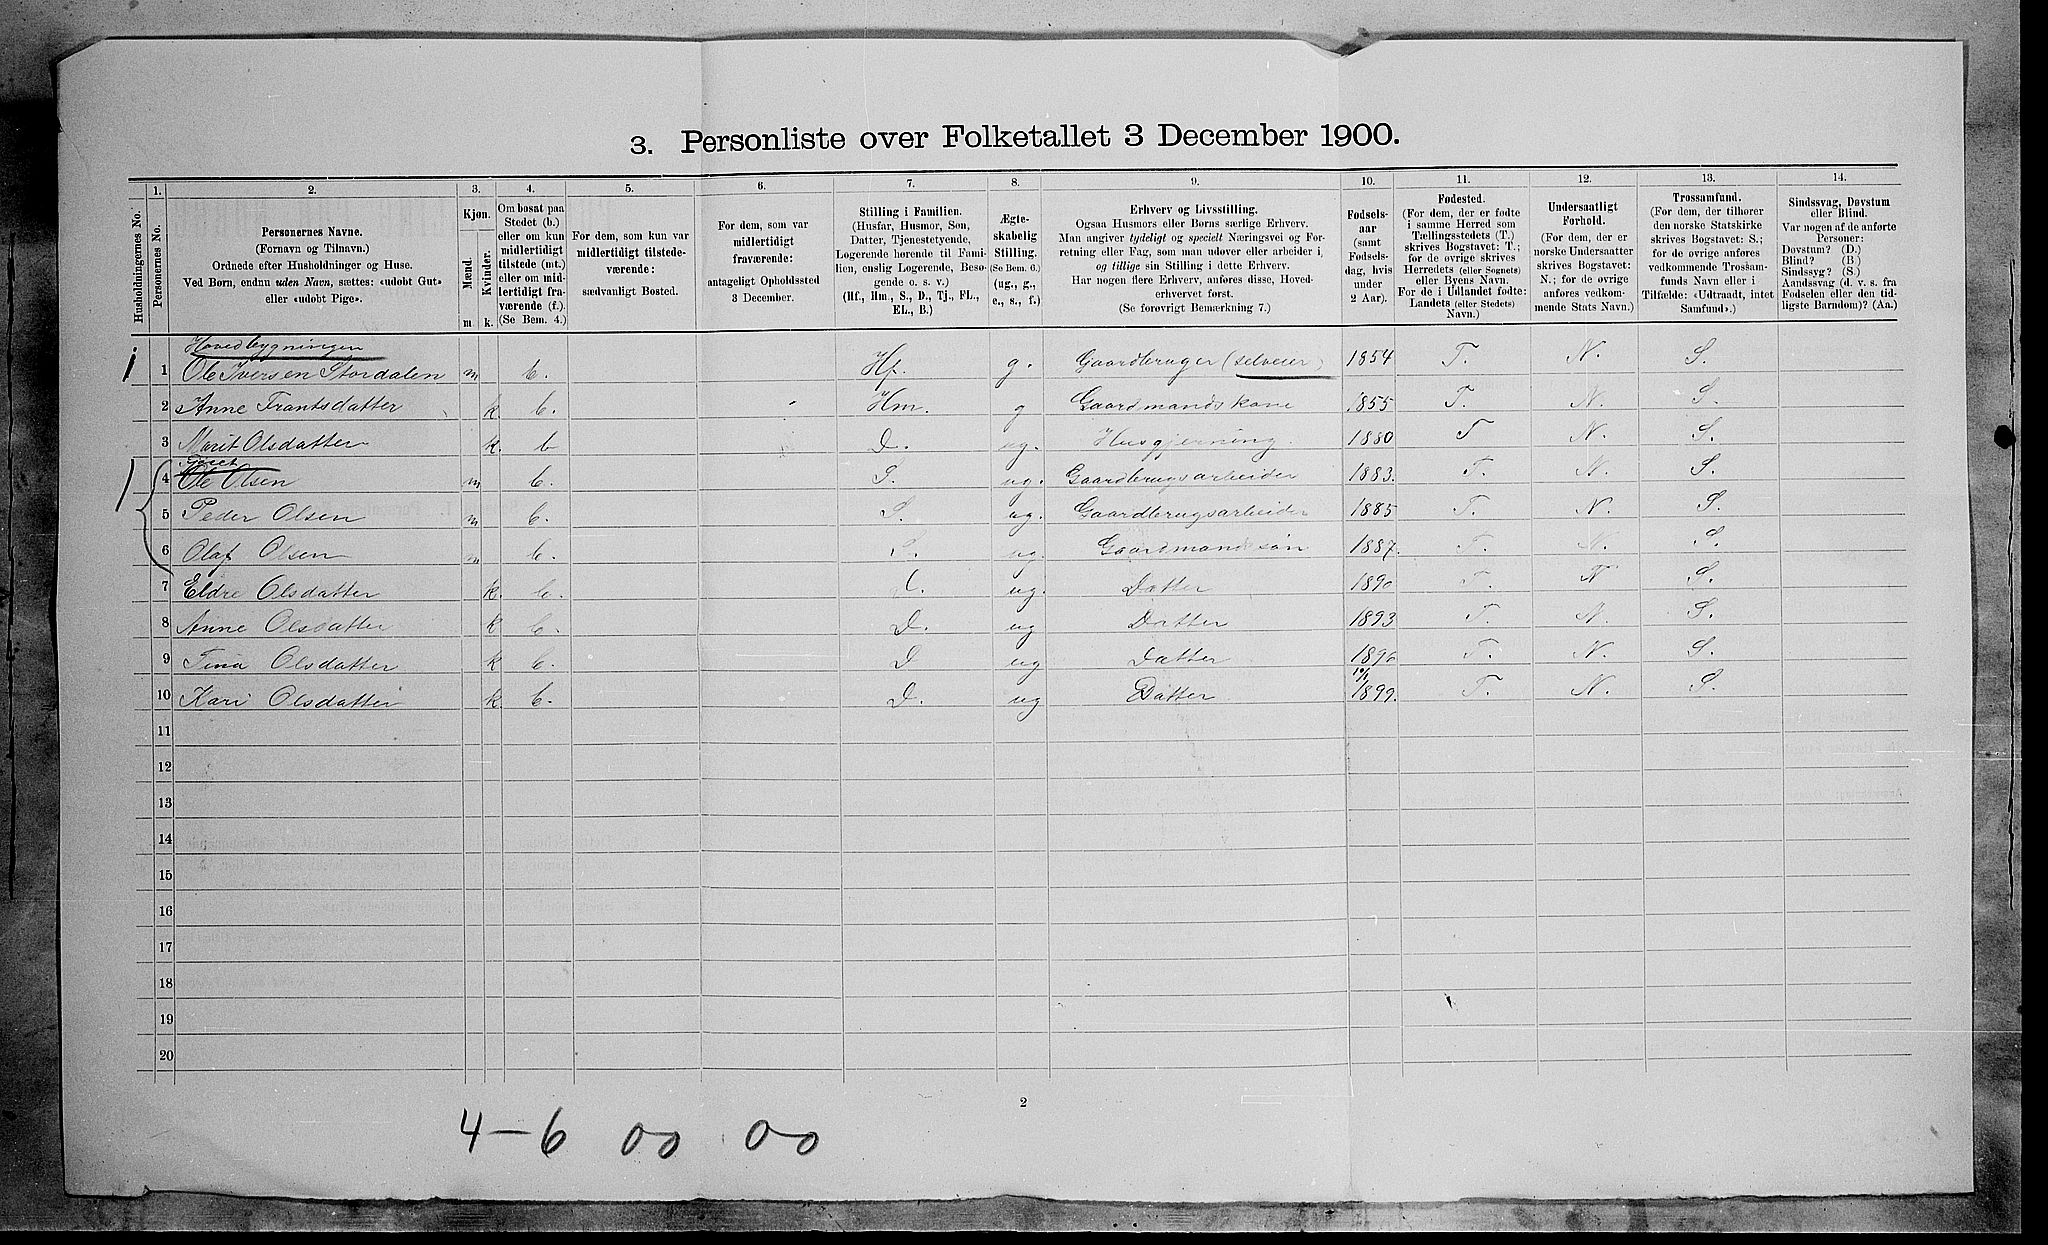 3. Personliste over Folketallet 3 December 1900.
Husholdningernes No.
1. Personernes No.
2. Personernes Navne.
(Fornavn og Tilnavn.)
Ordnede efter Husholdninger og Huse.
Ved Børn, endnu uden Navn, sættes: «udobt Gut»
eller «udobt Pige».
3. Kjøn.
Mænd. m
Kvinder. k.
4. Om bosat paa
Stedet (b.)
eller om kun
midlertidigt
tilstede (mt.)
eller om mid-
lertidigt fra-
værende (f.).
(Se Bem. 4.)
5. For dem, som kun var
midlertidigt tilstede-
værende:
sædvanligt Bosted.
6. For dem, som var
midlertidigt
fraværende:
antageligt Opholdssted
3 December.
7. Stilling i Familien.
(Husfar, Husmor, Søn,
Datter, Tjenestetyende,
Logerende hørende til Fami-
lien, enslig Logerende, Besø-
gende o. s. v.)
(Hf., Hm., S., D., Tj., FL.,
EL., B.)
8. Ægte-
skabelig
Stilling.
(Se Bem. 6.)
(ug., g.,
e., s., f.)
9. Erhverv og Livsstilling.
Ogsaa Husmors eller Børns særlige Erhverv.
Man angiver tydeligt og specielt Næringsvei og For-
retning eller Fag, som man udøver eller arbeider i,
og tillige sin Stilling i dette Erhverv.
Har nogen flere Erhverv, anføres disse, Hoved-
erhvervet først.
(Se forøvrigt Bemærkning 7.)
10. Fødsels-
aar
(samt
Fødsels-
dag, hvis
under
2 Aar).
11. Fødested.
(For dem, der er fødte
i samme Herred som
Tællingsstedets (T.)
skrives Bogstavet: T.;
for de øvrige skrives
Herredets (eller Sognets)
eller Byens Navn.
For de i Udlandet fødte:
Landets (eller Stedets)
Navn.)
12. Undersaatligt
Forhold.
(For dem, der er
norske Undersaatter
skrives Bogstavet:
N.; for de øvrige
anføres vedkom-
mende Stats Navn.)
13. Trossamfund.
(For dem, der tilhører
den norske Statskirke
skrives Bogstavet: S.;
for de øvrige anføres
vedkommende Trossam-
funds Navn eller i
Tilfælde: «Udtraadt, intet
Samfund».)
14. Sindssvag, Døvstum
eller Blind.
Var nogen af de anførte
Personer:
Døvstum? (D.)
Blind? (B.)
Sindssyg? (S.)
Aandssvag (d. v. s. fra
Fødselen eller den tid-
ligste Barndom)? (Aa.)
Hovedbygningen
1 Ole Iversen Stordalen m b. Hf. g. Gaardbruger (selveier) 1854 T. N. S.
2 Anne Frantsdatter k b. Hm. g Gaardmandskone 1855 T. N. S.
3 Marit Olsdatter k. b D. ug. Husgjerning. 1880 T N. S.
4 Ole Olsen m b. S. ug. Gaardbrugsarbeider 1883. T. N. S.
5 Peder Olsen m b. S. ug. Gaardbrugsarbeider 1885 T. N. S.
6 Olaf Olsen m b. S. ug. Gaardmandssøn 1887. T. N. S.
7 Eldre Olsdatter k. b. D. ug. Datter 1890 T. N S.
8 Anne Olsdatter k b. D. ug Datter 1893 T. N. S.
9 Tina Olsdatter k b. D ug Datter 1896 T. N. S.
10 Kari Olsdatter k. b. D. ug Datter 1899. T. N. S.
11
12
13
14
15
16
17
18
19
20
2
4-6 00 00